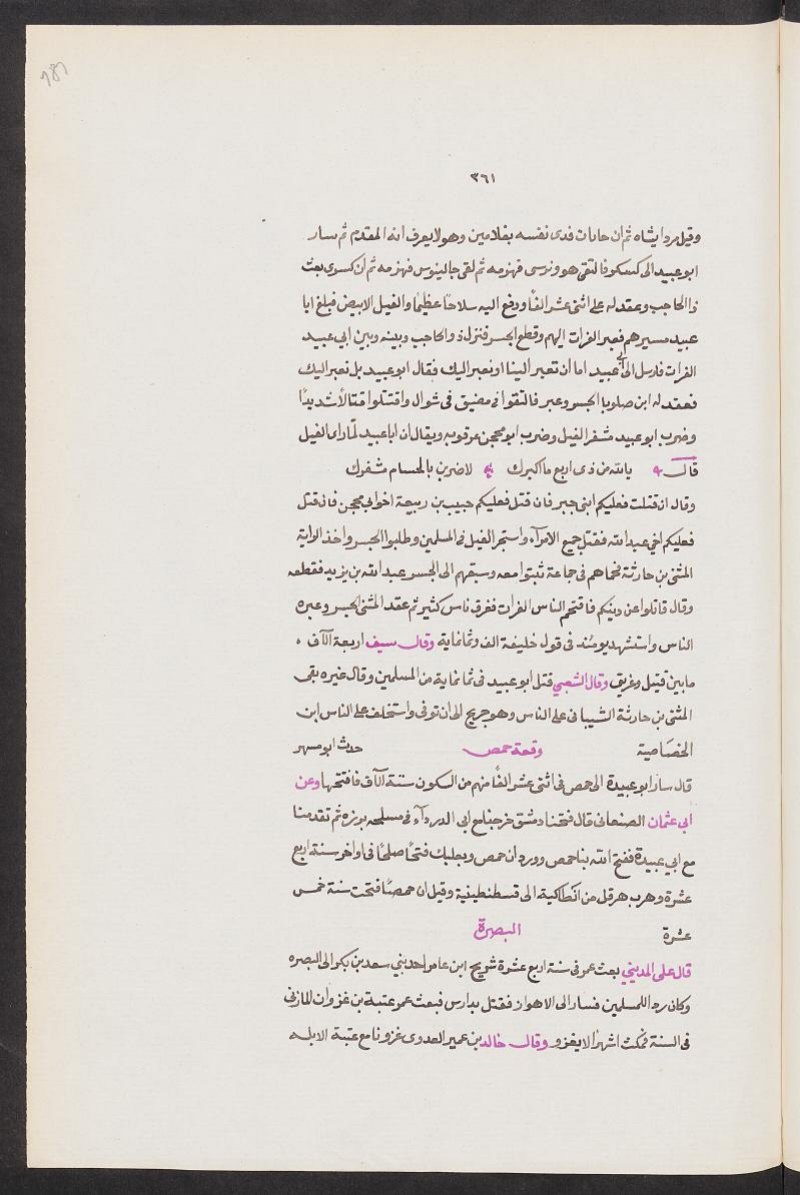 ٣٦١
وقيل مردانشاه ثم ان جابان فدى نفسه بغلامين وهو لا يعرف انه المقدم ثم سار
ابو عبيد الى كسكر فالتقى هو ونرسى فهزمه ثم لقى جالينوس فهزمه ثم ان كسرى بعث
ذا الحاجب وعقد له على اثنى عشر الفًا ودفع اليه سلاحًا عظيمًا والفيل الابيض فبلغ ابا
عبيد مسيرهم فعبر الفرات اليهم وقطع الجسر فنزل ذو الحاجب وبينه وبين ابي عبيد
الفرات فارسل الى ابي عبيد اما ان تعبر الينا او نعبر اليك فقال ابو عبيد بل نعبر اليك
فعقد له ابن صلوبا الجسر وعبر فالتقوا فى مضيق فى شوال واقتتلوا قتالًا شديدًا
وضرب ابو عبيد مشفر الفيل وضرب ابو محجن عرقوبه ويقال ان ابا عبيد لمّا راى الفيل
قال يالله من ذى اربع ما اكبرك لاضربن بالحسام مشفرك
وقال ان قتلت فعليكم ابنى جبر فان قتل فعليكم حبيب بن ربيعة اخو ابى محجن فان قتل
فعليكم اخى عبد الله فقتل جميع الامرآء واستحر القتل فى المسلمين وطلبوا الجسر واخذ الراية
المثنى بن حارثة فحماهم فى جماعة ثبتوا معه وسبقهم الى الجسر عبد الله بن يزيد فقطعه
وقال قاتلوا عن دينكم فاقتحم الناس الفرات فغرق ناس كثير ثم عقد المثنى الجسر وعبره
الناس واستشهد يومئذ فى قول خليفة الف وثمانماية وقال سيف اربعة الآف
ما بين قتيل وغريق وقال الشعبي قتل ابو عبيد فى ثمانماية من المسلمين وقال غيره بقى
المثنى بن حارثة الشيبانى على الناس وهو جريح الى ان توفى واستخلف على الناس ابن
الخصاصية وقعة حمص حدث ابو مسهر
قال سار ابو عبيدة الى حمص فى اثنى عشر الفًا منهم من السكون ستة الآف فافتتحها وعن
ابى عثمان الصنعانى قال فتحنا دمشق خرجنا مع ابى الدردآء فى مسلحة برزه ثم تقدمنا
مع ابى عبيدة ففتح الله بنا حمص وورد ان حمص وبعلبك فتحًا صلحًا فى اواخر سنة اربع
عشرة وهرب هرقل من انطاكية الى قسطنطينية وقيل ان حمصًا فتحت سنة خمس
عشرة البصرة
قال على المدينى بعث عمر فى سنة اربع عشرة شريح ابن عامر احد بنى سعد بن بكر الى البصره
وكان ردءا للمسلمين فسار الى الاهواز فقتل بدارس فبعث عمر عتبة بن غزوان المازنى
فى السنة فمكث اشهرًا لا يغزو وقال خالد بن عمير العدوى غزونا مع عتبة الابله